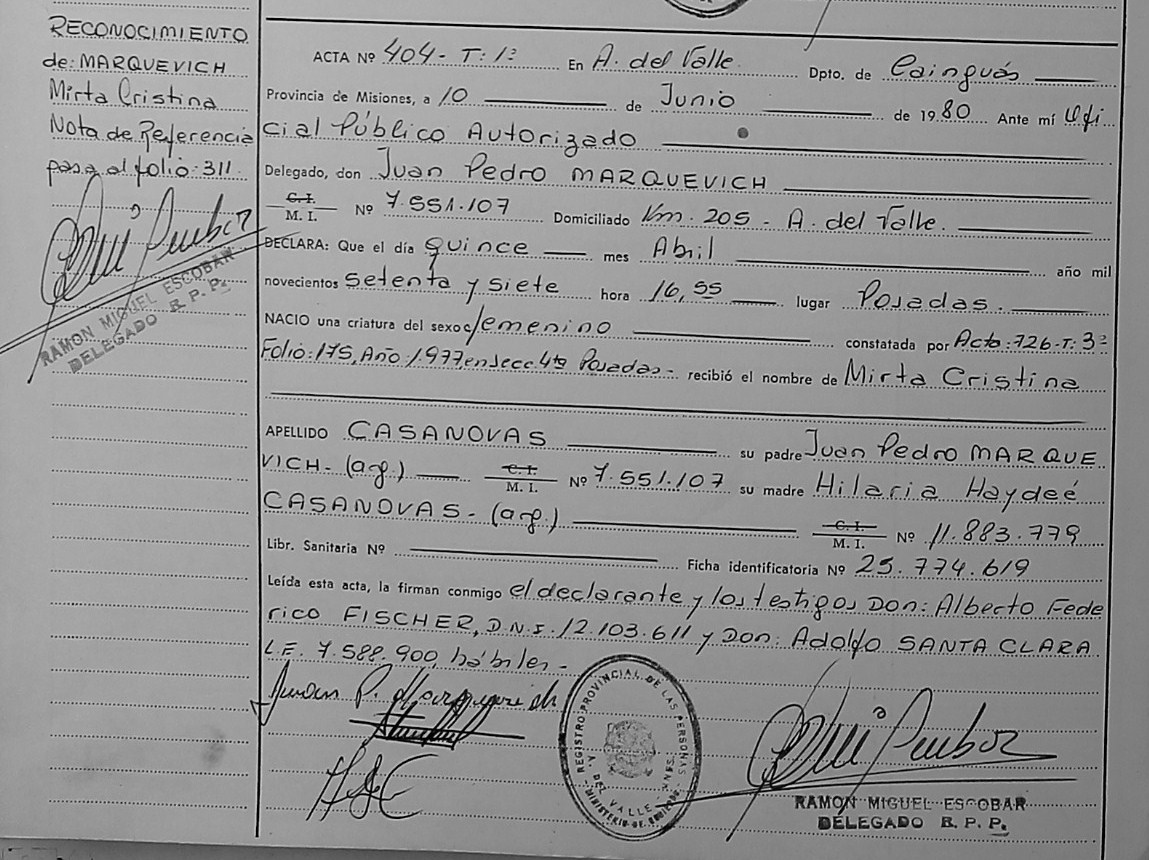 RECONOCIMIENTO
de: MARQUEVICH
Mirta Cristina
Nota de Referencia
pasa al folio: 311
RAMON MIGUEL ESCOBAR
DELEGADO R. P. P.
ACTA Nº 404 - T: 1º En A. del Valle Dpto. de Cainguás
Provincia de Misiones, a 10 de Junio de 1980 Ante mí Ofi
cial Público Autorizado
Delegado, don Juan Pedro MARQUEVICH
C. I. / M. I. Nº 7.551.107 Domiciliado Km. 205 - A. del Valle.
DECLARA: Que el día quince mes Abril año mil
novecientos setenta y siete hora 16,55 lugar Posadas.
NACIO una criatura del sexo femenino constatada por Acta: 726 - T: 3º
Folio: 175, Año: 1.977, en Secc. 4ta Posadas - recibió el nombre de Mirta Cristina
APELLIDO CASANOVAS su padre Juan Pedro MARQUE
VICH - (arg.) C. I. / M. I. Nº 7.551.107 su madre Hilaria Haydeé
CASANOVAS - (arg.) C. I. / M. I. Nº 11.883.779
Libr. Sanitaria Nº Ficha identificatoria Nº 25.774.619
Leída esta acta, la firman conmigo el declarante y los testigos Don: Alberto Fede
rico FISCHER, D.N.I. 12.103.611 y Don: Adolfo SANTA CLARA
L.E. 7.588.900, hábiles -
Juan P. Marquevich
REGISTRO PROVINCIAL DE LAS PERSONAS
DEL VALLE
RAMON MIGUEL ESCOBAR
DELEGADO R. P. P.